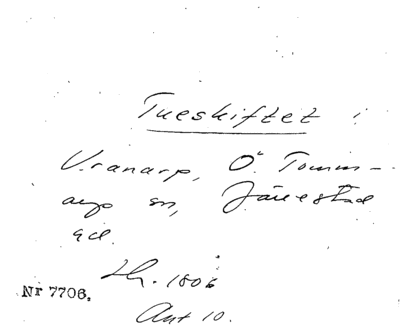 Tueskiftet
Vranarp, Ö. Tomm-
arp sn, Järrestad
Hr. 1806
Nr 7706.
Akt 10.